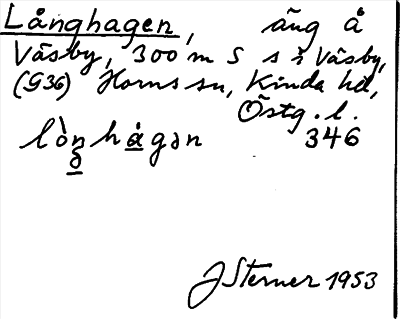 Långhagen, äng å
Väsby, 300 m S s ? Väsby,
(G36) Horns sn, Kinda hd,
Östg. l.
346
J Sterner 1953